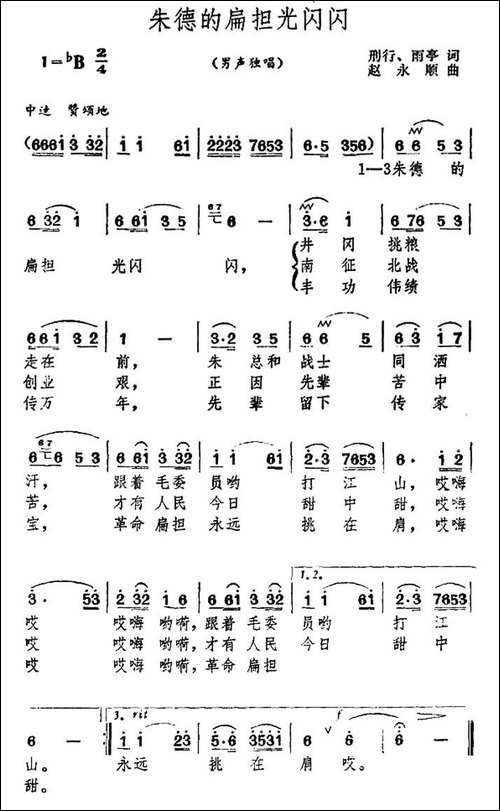 朱德的扁担光闪闪
1=♭B 2/4 (男声独唱) 邢行、雨亭 词
赵永顺 曲
中速 赞颂地
(6661 3 32 | 1 1 61 | 2223 7653 | 6·5 356) | 6 6 5 3 |
1—3朱德 的
6 32 1 | 6 61 3 5 | 6 — | 3·6 1 | 6 76 5 3 |
扁担 光闪 闪, 井 冈 挑粮
南 征 北战
丰 功 伟绩
6 61 2 | 1 — | 3·2 3 5 | 6 6 5 | 6 3 1 7 |
走在 前, 朱 总和 战士 同 洒
创业 艰, 正 因 先辈 苦 中
传万 年, 先 辈 留下 传 家
6 6 5 3 | 6 61 3 32 | 1 1 61 | 2·3 7653 | 6· 1 2 |
汗, 跟着 毛委 员哟 打 江 山, 哎嗨
苦, 才有 人民 今日 甜 中 甜, 哎嗨
宝, 革命 扁担 永远 挑 在 肩, 哎嗨
3· 53 | 2 32 1 6 | 6 61 3 32 | 1 1 61 | 2·3 7653 |
1.2.
哎 哎嗨 哟嗬, 跟着 毛委 员哟 打 江
哎 哎嗨 哟嗬, 才有 人民 今日 甜 中
哎 哎嗨 哟嗬, 革命 扁担
6 — :| 1 1 23 | 5·6 3531 | 6 6 | 6 — ‖
3. rit f
山。 永远 挑 在 肩 哎。
甜。